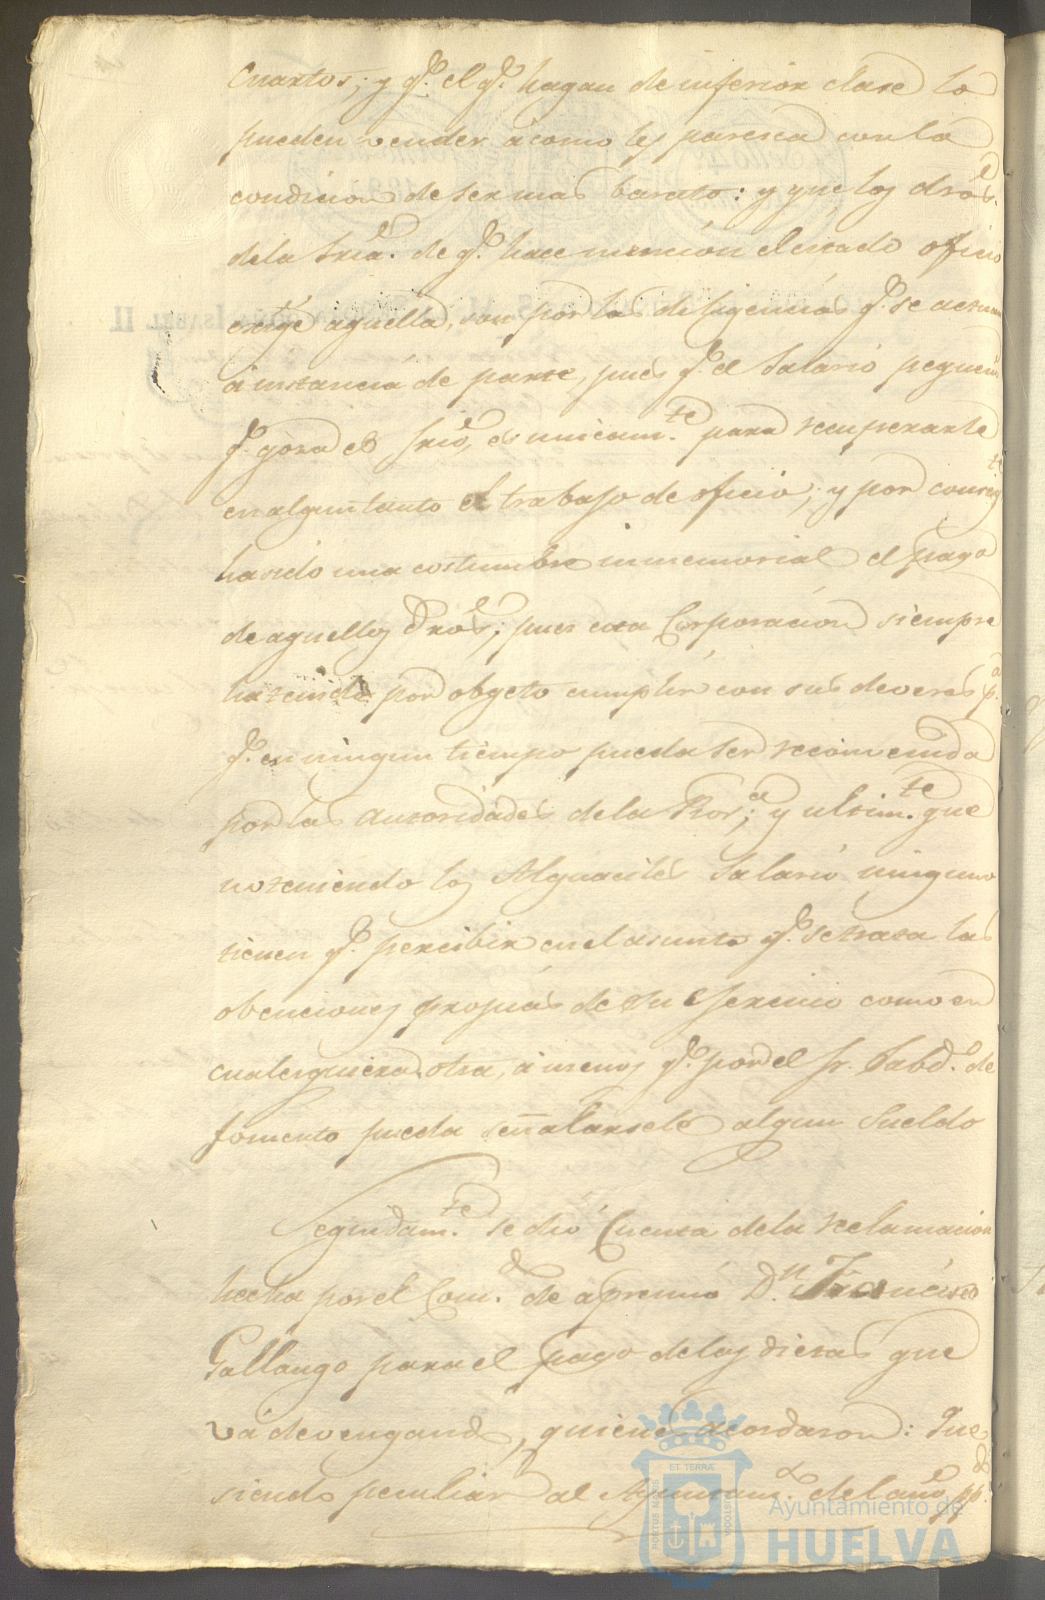 Cuartos; y q.e el q.e hagan de inferior clase lo
pueden vender á como les paresca con la
condicion de ser mas barato: y que los dros.
de la Sria. de q.e hace mencion el citado oficio
exige aquella, son por las diligencias q.e se actuan
á instancia de parte, pues q.e el Salario pequeño
q.e goza el Srio, es unicam.te para recuperarle
en algun tanto el trabajo de oficio; y por consig.te
ha sido una costumbre inmemorial el pago
de aquellos Dros; pues esta Corporacion siempre
ha tenido por obgeto cumplir con sus deveres p.a
q.e en ningun tiempo pueda ser reconvenida
por las Autoridades de la Prov.a; y ultim.te que
no teniendo los Alguaciles Salario ninguno
tienen q.e percibir en el asunto q.e se trata las
obenciones propias de su Exercicio como en
cualesquiera otra, á menos q.e por el Sr. Subd.o de
fomento pueda señalarsele algun Sueldo
Seguidam.te se dió Cuenta de la reclamacion
hecha por el Com.do de apremio D.n Francisco
Gallango para el pago de las dietas que
vá devengando, quienes acordaron: Que
siendo peculiar al Ayuntam.to del año pp.do
ET TERRÆ
PORTUS MARIS
CUSTODIA
Ayuntamiento de
HUELVA
ISABEL II